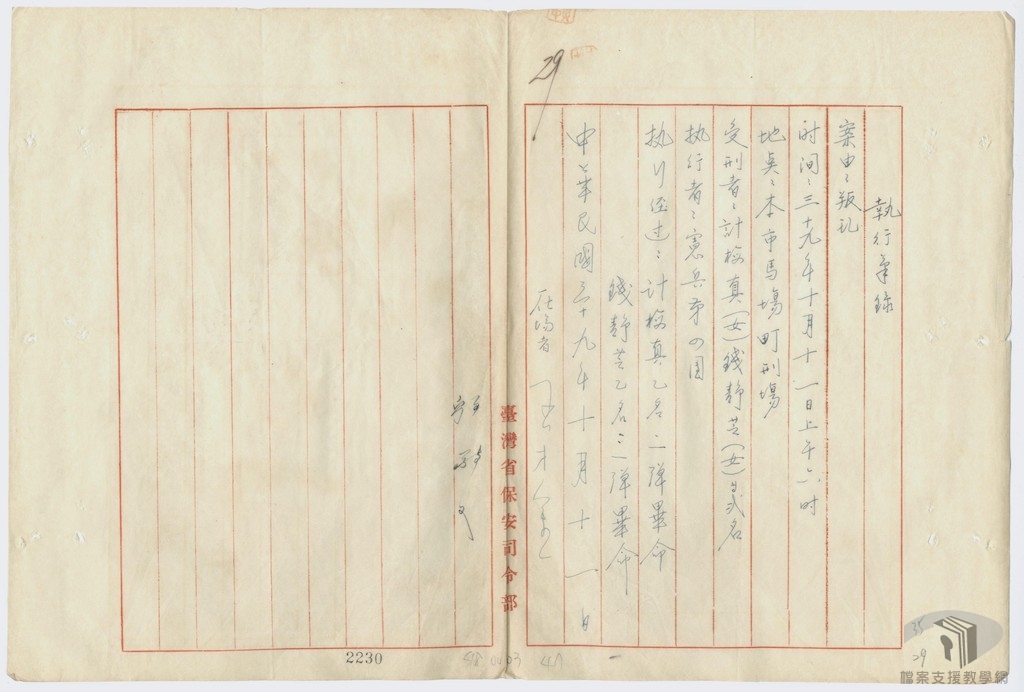 29
執行筆錄
案由：叛乱
时间：三十九年十月十一日上午六时
地奌：本市馬場町刑場
受刑者：計梅真(女)錢靜芝(女)弍名
执行者：憲兵第四团
执行经过：計梅真乙名二弹畢命
錢靜芝乙名三弹畢命
中華民國三十九年十月十一日
在場者
臺灣省保安司令部
2230
35
29
檔案支援教學網